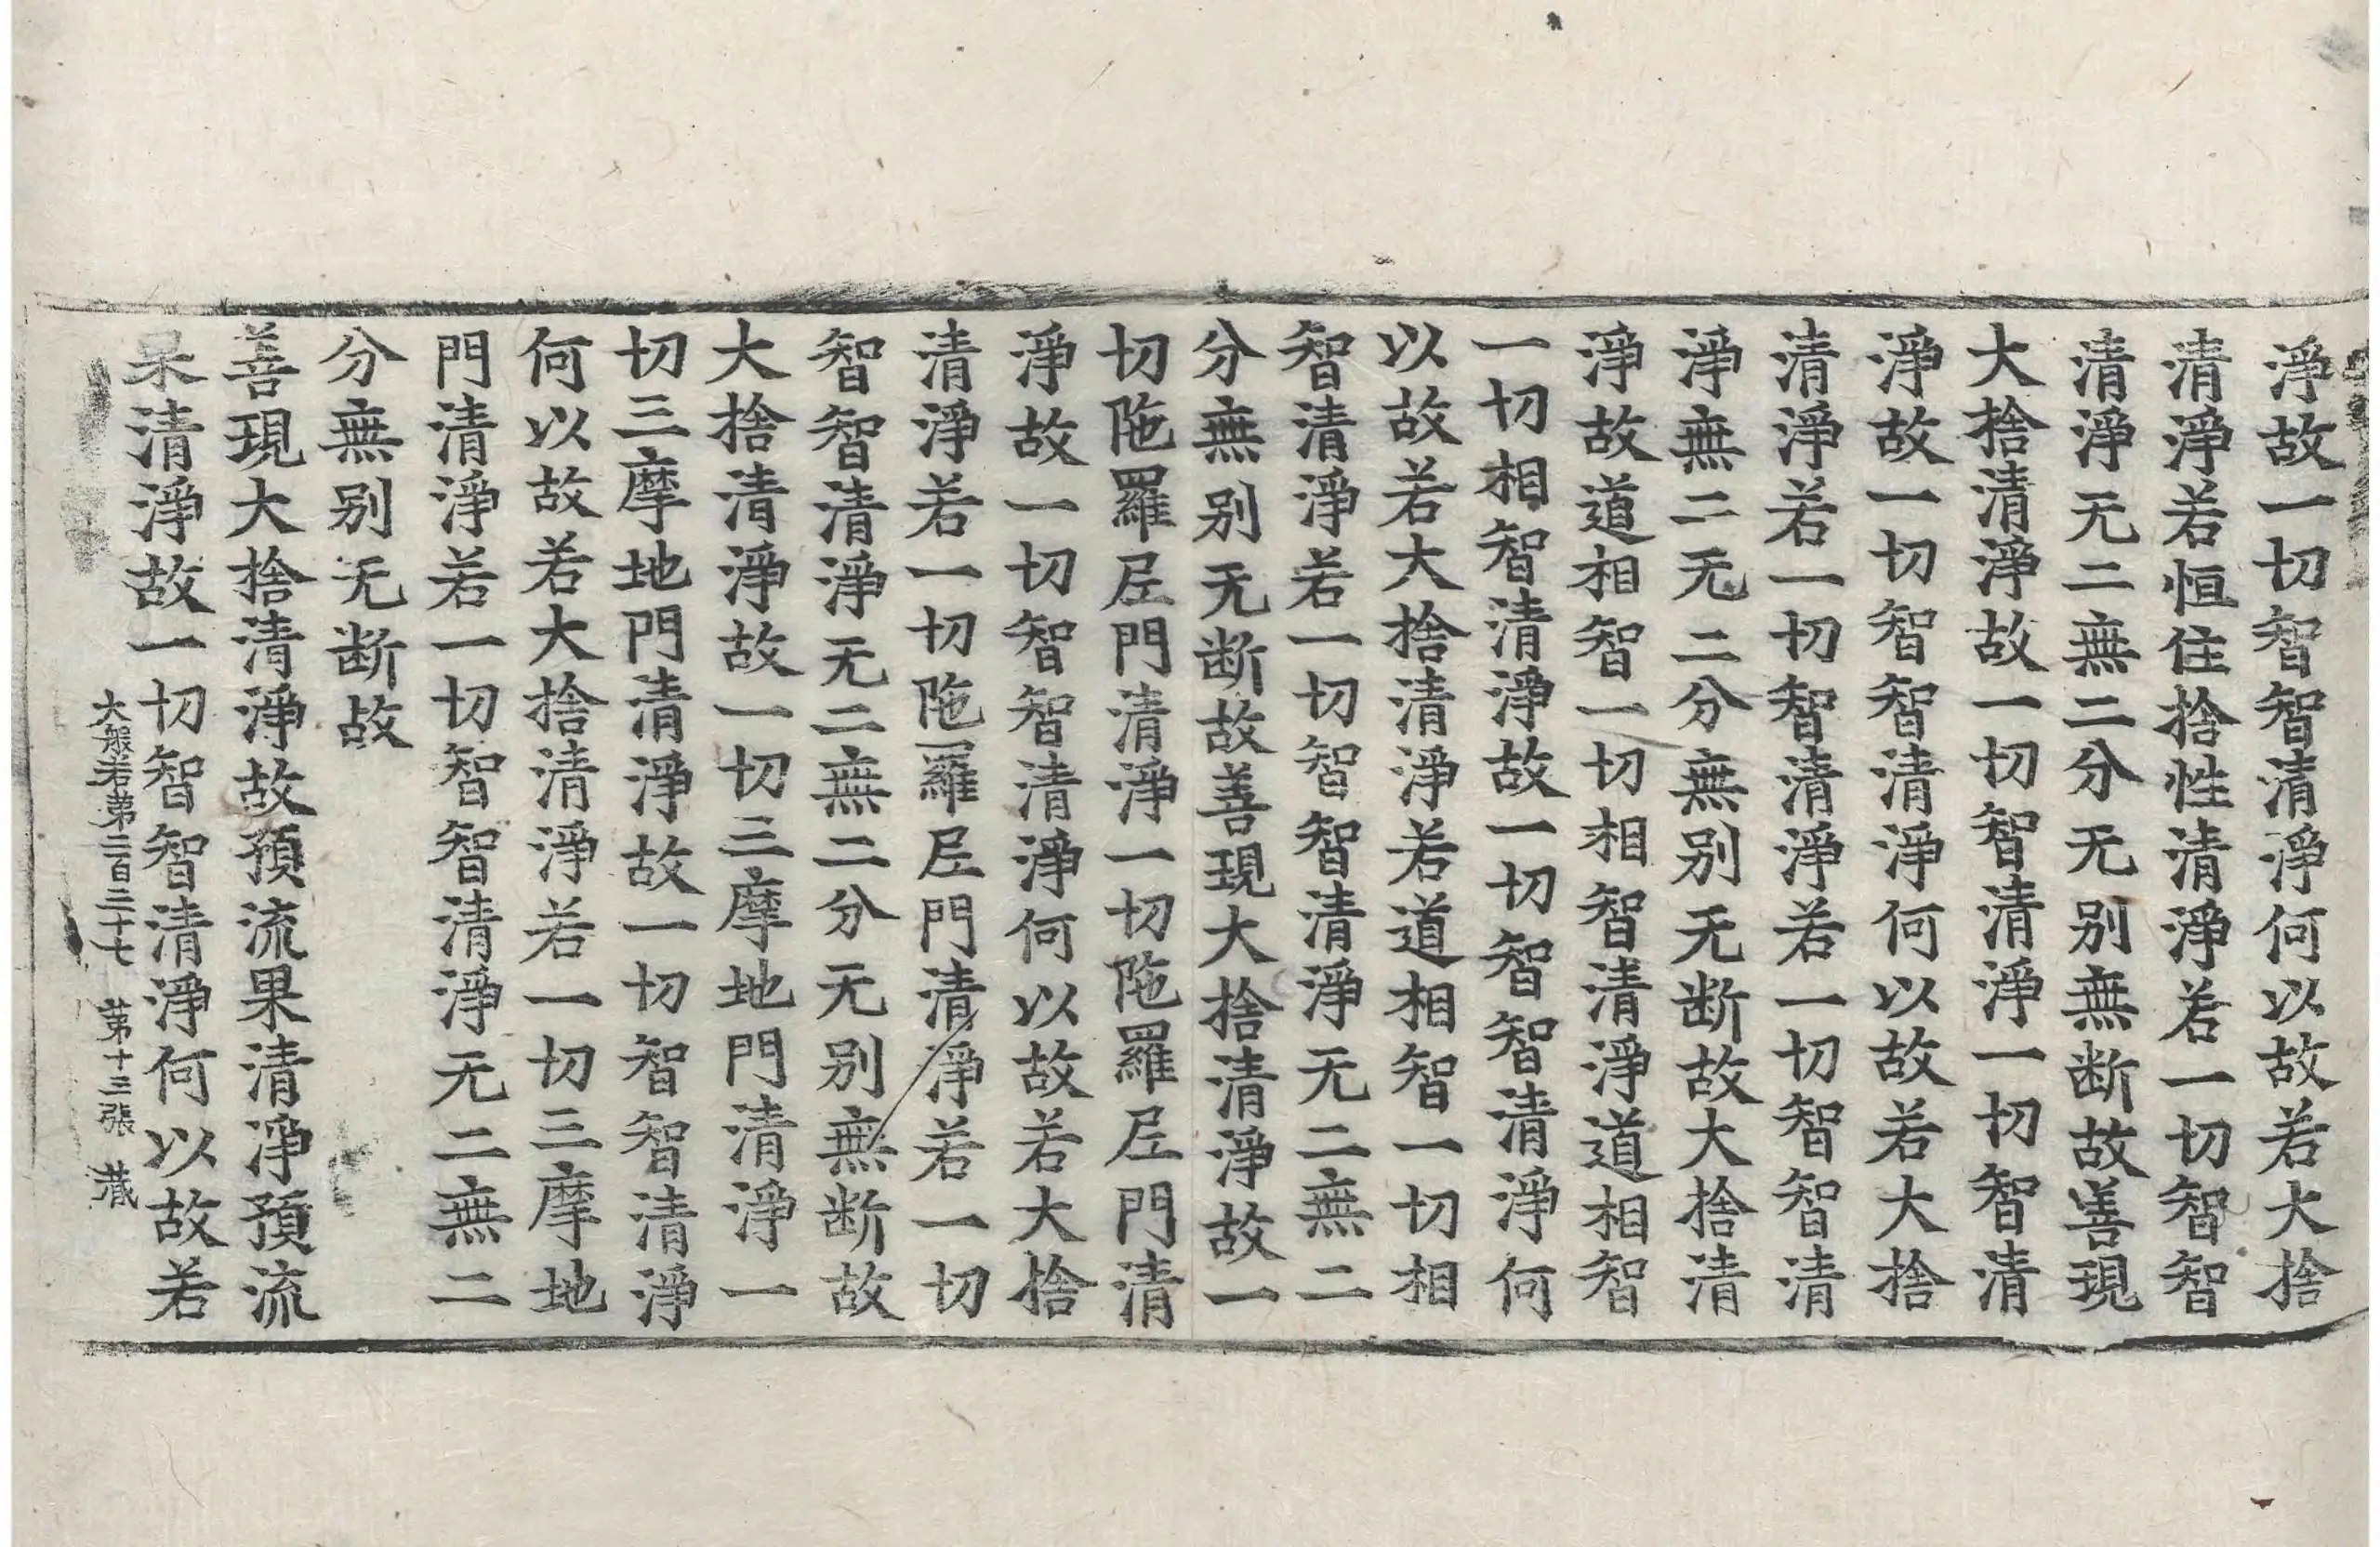 淨故一切智智清淨何以故若大捨
清淨若恒住捨性清淨若一切智智
清淨无二無二分无别無断故善現
大捨清淨故一切智智清淨一切智清
淨故一切智智清淨何以故若大捨
清淨若一切智清淨若一切智智清
淨無二无二分無别无断故大捨清
淨故道相智一切相智清淨道相智
一切相智清淨故一切智智清淨何
以故若大捨清淨若道相智一切相
智清淨若一切智智清淨无二無二
分無别无断故善現大捨清淨故一
切陁羅𡰱門清淨一切陁羅𡰱門清
淨故一切智智清淨何以故若大捨
清淨若一切陁羅𡰱門清淨若一切
智智清淨无二無二分无别無断故
大捨清淨故一切三摩地門清淨一
切三摩地門清淨故一切智智清淨
何以故若大捨清淨若一切三摩地
門清淨若一切智智清淨无二無二
分無别无断故
善現大捨清淨故預流果清淨預流
果清淨故一切智智清淨何以故若
大般若第二百三十七 第十三張 藏